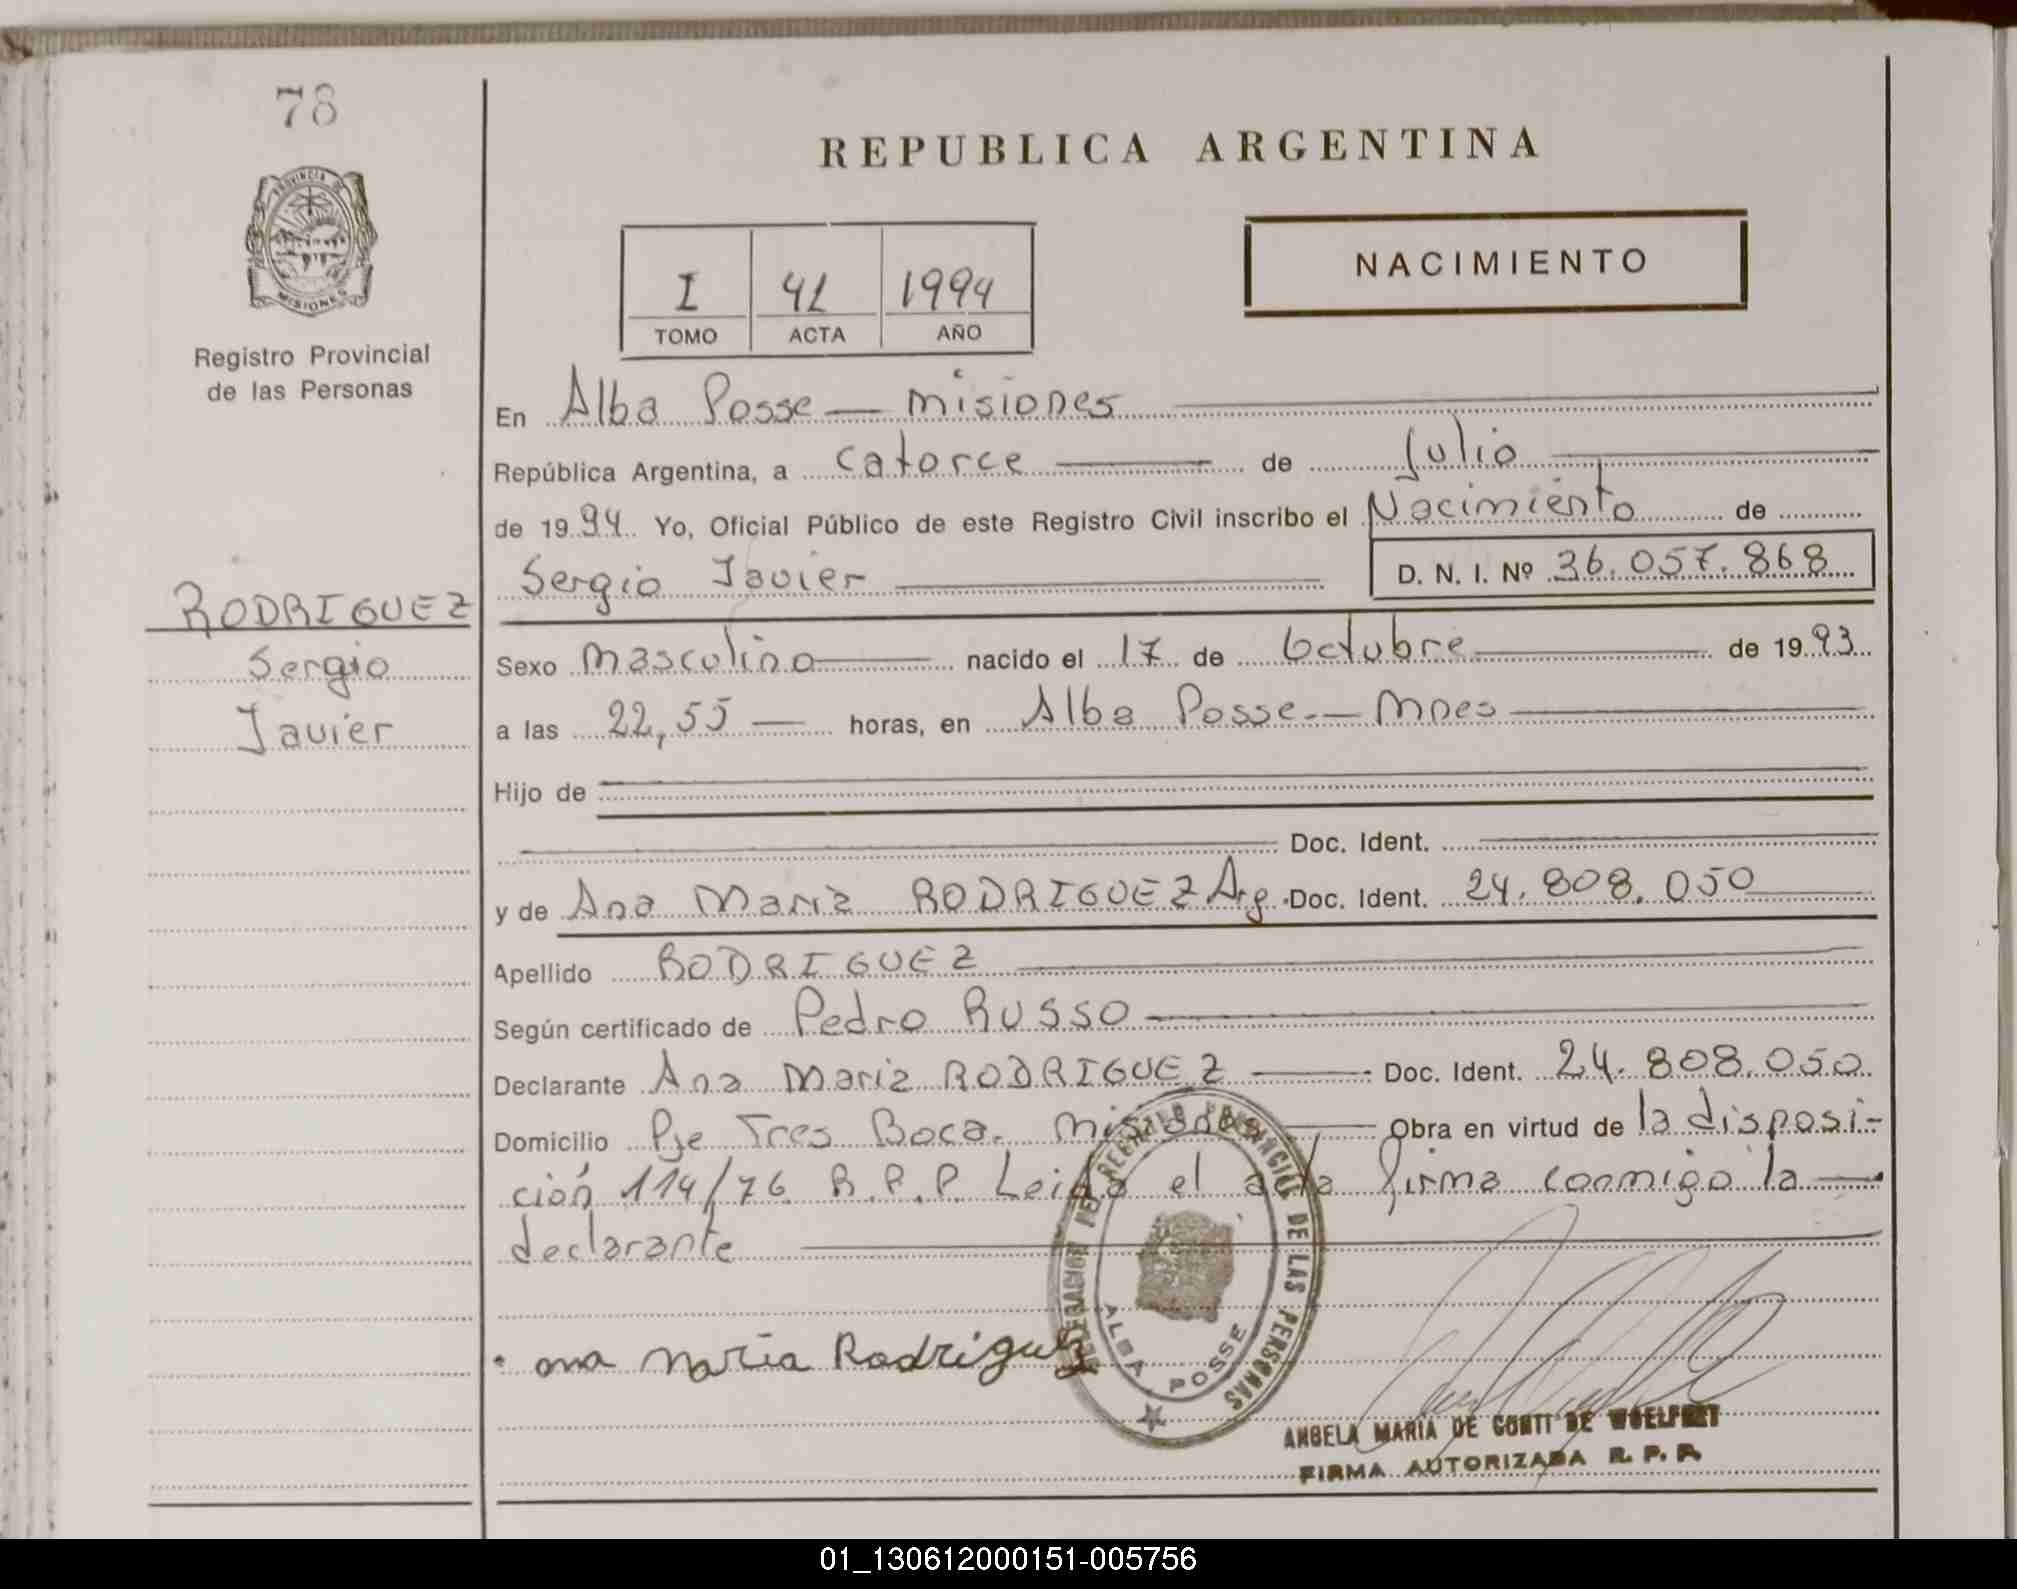 78
REPUBLICA ARGENTINA
PROVINCIA DE
MISIONES
Registro Provincial
de las Personas
I 41 1994
TOMO ACTA AÑO
NACIMIENTO
En Alba Posse — Misiones
República Argentina, a catorce de Julio
de 1994 Yo, Oficial Público de este Registro Civil inscribo el Nacimiento de
Sergio Javier D. N. I. Nº 36.057.868
RODRIGUEZ
Sergio
Javier
Sexo Masculino nacido el 17 de Octubre de 1993
a las 22,55 horas, en Alba Posse.— Mnes
Hijo de
Doc. Ident.
y de Ana Maria RODRIGUEZ Arg. Doc. Ident. 24.808.050
Apellido RODRIGUEZ
Según certificado de Pedro RUSSO
Declarante Ana Maria RODRIGUEZ Doc. Ident. 24.808.050
Domicilio Pje Tres Boca. Misiones Obra en virtud de la disposi-
ción 114/76 R.P.P. Leida el acta firma conmigo la
declarante
ana Maria Rodriguez
DELEGACION DEL REGISTRO PROVINCIAL DE LAS PERSONAS
ALBA POSSE
ANGELA MARIA DE CONTI DE WOELFERT
FIRMA AUTORIZADA R. P. P.
01_130612000151-005756